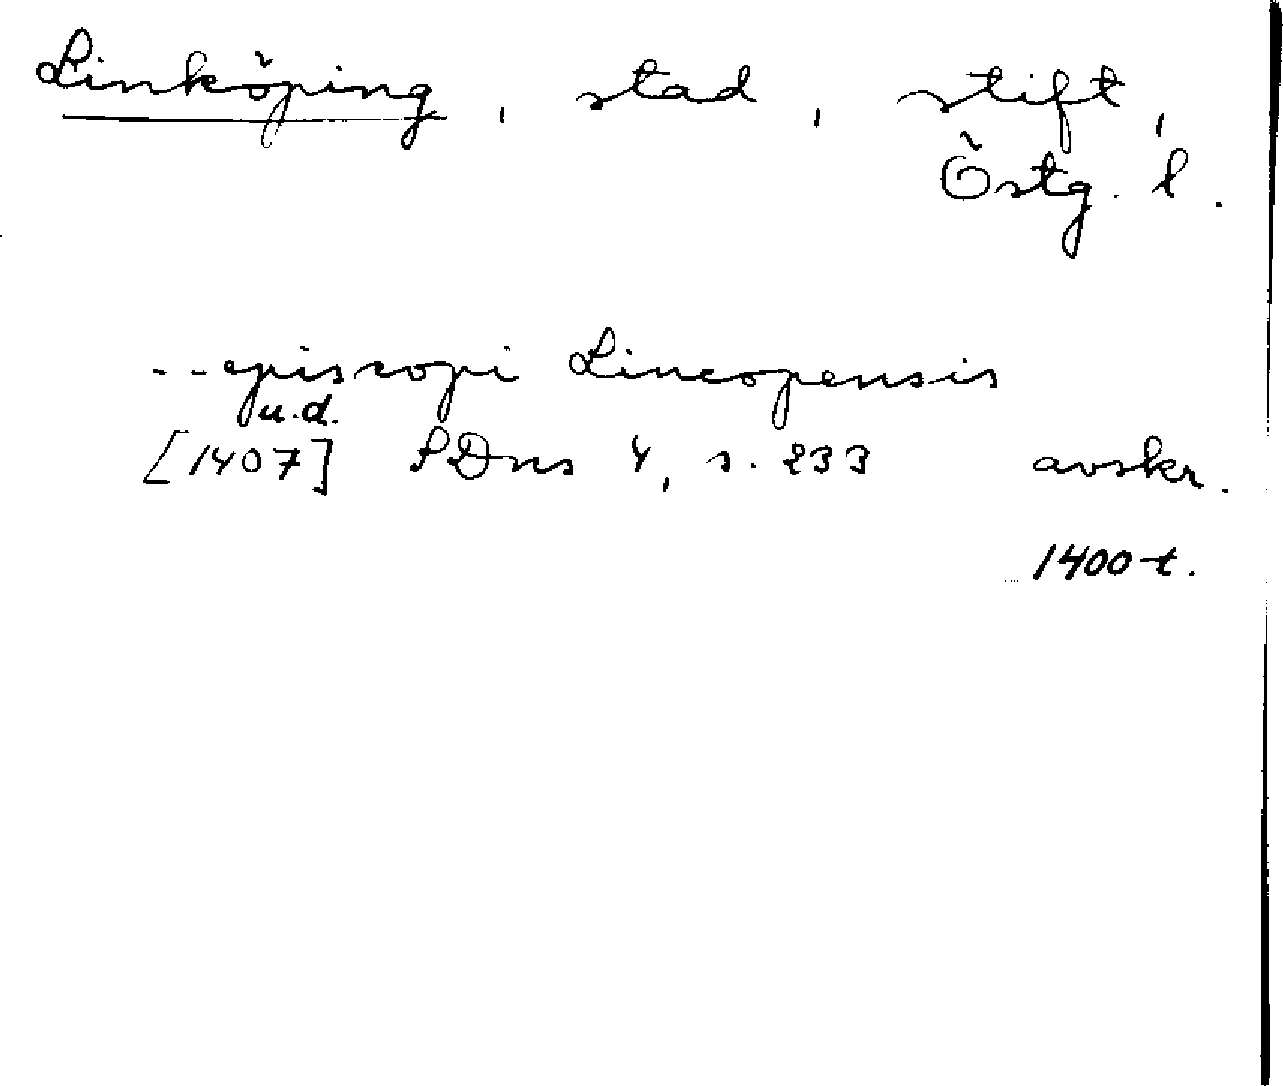 Linköping, stad, stift,
Östg. l.
--episcopi Lincopensis
u.d.
[1407] SDns 4, s. 233 avskr.
1400-t.